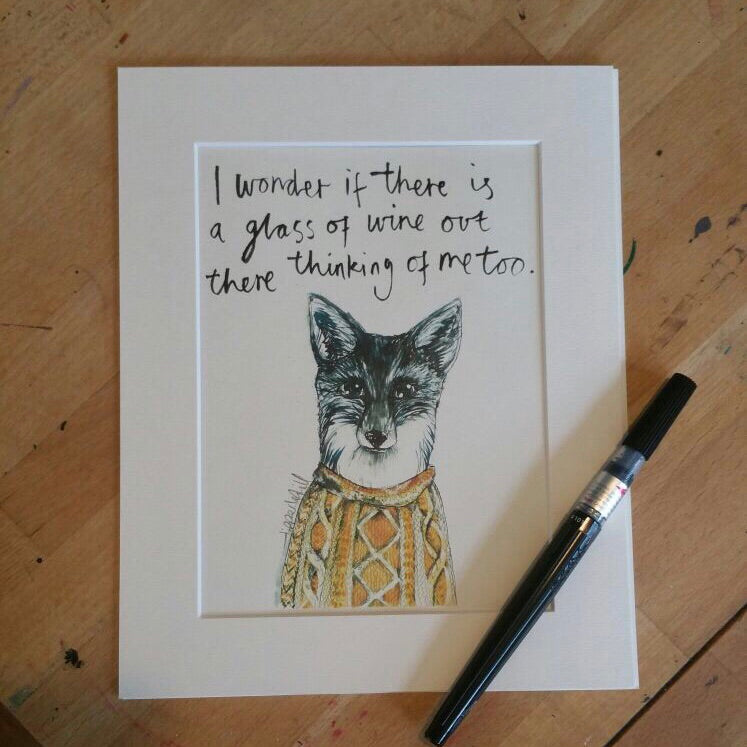 I wonder if there is
a glass of wine out
there thinking of me too.